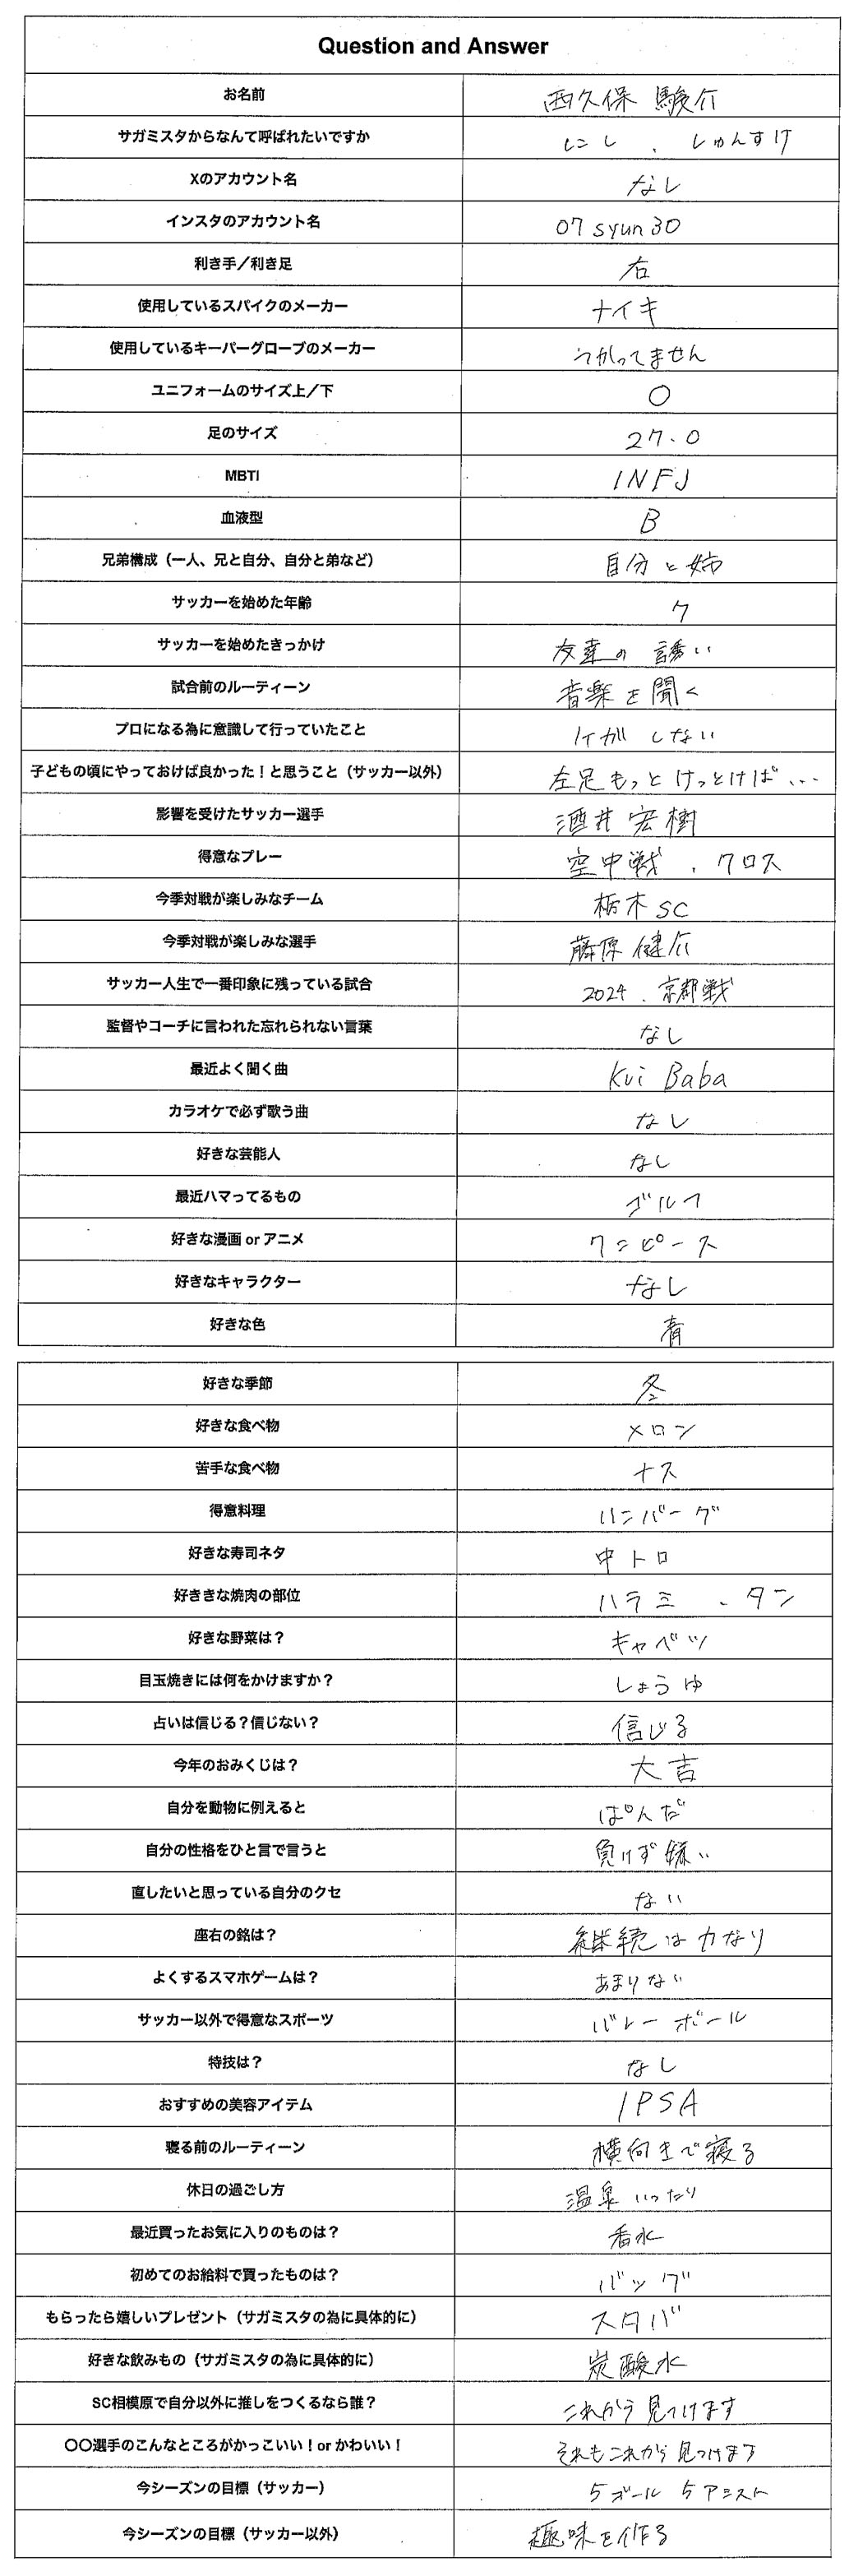 Question and Answer
お名前 西久保 駿介
サガミスタからなんて呼ばれたいですか にし、しゅんすけ
Xのアカウント名 なし
インスタのアカウント名 07syun30
利き手／利き足 右
使用しているスパイクのメーカー ナイキ
使用しているキーパーグローブのメーカー つかってません
ユニフォームのサイズ上／下 O
足のサイズ 27.0
MBTI INFJ
血液型 B
兄弟構成（一人、兄と自分、自分と弟など） 自分と姉
サッカーを始めた年齢 7
サッカーを始めたきっかけ 友達の誘い
試合前のルーティーン 音楽を聞く
プロになる為に意識して行っていたこと ケガしない
子どもの頃にやっておけば良かった！と思うこと（サッカー以外） 左足もっとけっとけば...
影響を受けたサッカー選手 酒井宏樹
得意なプレー 空中戦、クロス
今季対戦が楽しみなチーム 栃木SC
今季対戦が楽しみな選手 藤原健介
サッカー人生で一番印象に残っている試合 2024、京都戦
監督やコーチに言われた忘れられない言葉 なし
最近よく聞く曲 Kvi Baba
カラオケで必ず歌う曲 なし
好きな芸能人 なし
最近ハマってるもの ゴルフ
好きな漫画 or アニメ ワンピース
好きなキャラクター なし
好きな色 青
好きな季節 冬
好きな食べ物 メロン
苦手な食べ物 ナス
得意料理 ハンバーグ
好きな寿司ネタ 中トロ
好ききな焼肉の部位 ハラミ、タン
好きな野菜は？ キャベツ
目玉焼きには何をかけますか？ しょうゆ
占いは信じる？信じない？ 信じる
今年のおみくじは？ 大吉
自分を動物に例えると ぱんだ
自分の性格をひと言で言うと 負けず嫌い
直したいと思っている自分のクセ ない
座右の銘は？ 継続は力なり
よくするスマホゲームは？ あまりない
サッカー以外で得意なスポーツ バレーボール
特技は？ なし
おすすめの美容アイテム IPSA
寝る前のルーティーン 横向きで寝る
休日の過ごし方 温泉いったり
最近買ったお気に入りのものは？ 香水
初めてのお給料で買ったものは？ バッグ
もらったら嬉しいプレゼント（サガミスタの為に具体的に） スタバ
好きな飲みもの（サガミスタの為に具体的に） 炭酸水
SC相模原で自分以外に推しをつくるなら誰？ これから見つけます
〇〇選手のこんなところがかっこいい！or かわいい！ それもこれから見つけます
今シーズンの目標（サッカー） 5ゴール 5アシスト
今シーズンの目標（サッカー以外） 趣味を作る